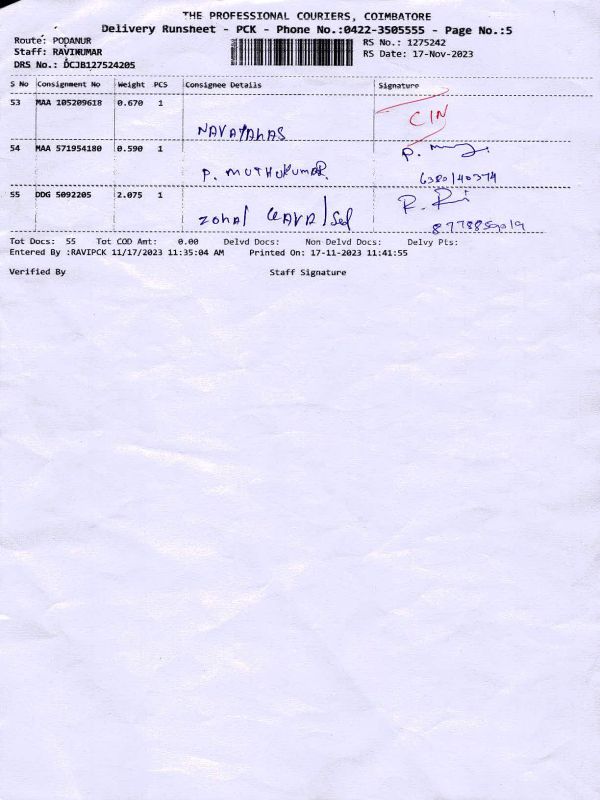 THE PROFESSIONAL COURIERS, COIMBATORE
Delivery Runsheet - PCK - Phone No.:0422-3505555 - Page No.:5
Route: PODANUR
RS No.: 1275242
Staff: RAVIKUMAR
RS Date: 17-Nov-2023
DRS No.: DCJB127524205
S No Consignment No Weight PCS Consignee Details Signature
53 MAA 105209618 0.670 1
CIN
54 MAA 571954180 0.590 1
P. MUTHUKUMAR.
55 DDG 5092205 2.075 1
Tot Docs: 55 Tot COD Amt: 0.00 Delvd Docs: Non Delvd Docs: Delvy Pts:
Entered By :RAVIPCK 11/17/2023 11:35:04 AM Printed On: 17-11-2023 11:41:55
Verified By Staff Signature